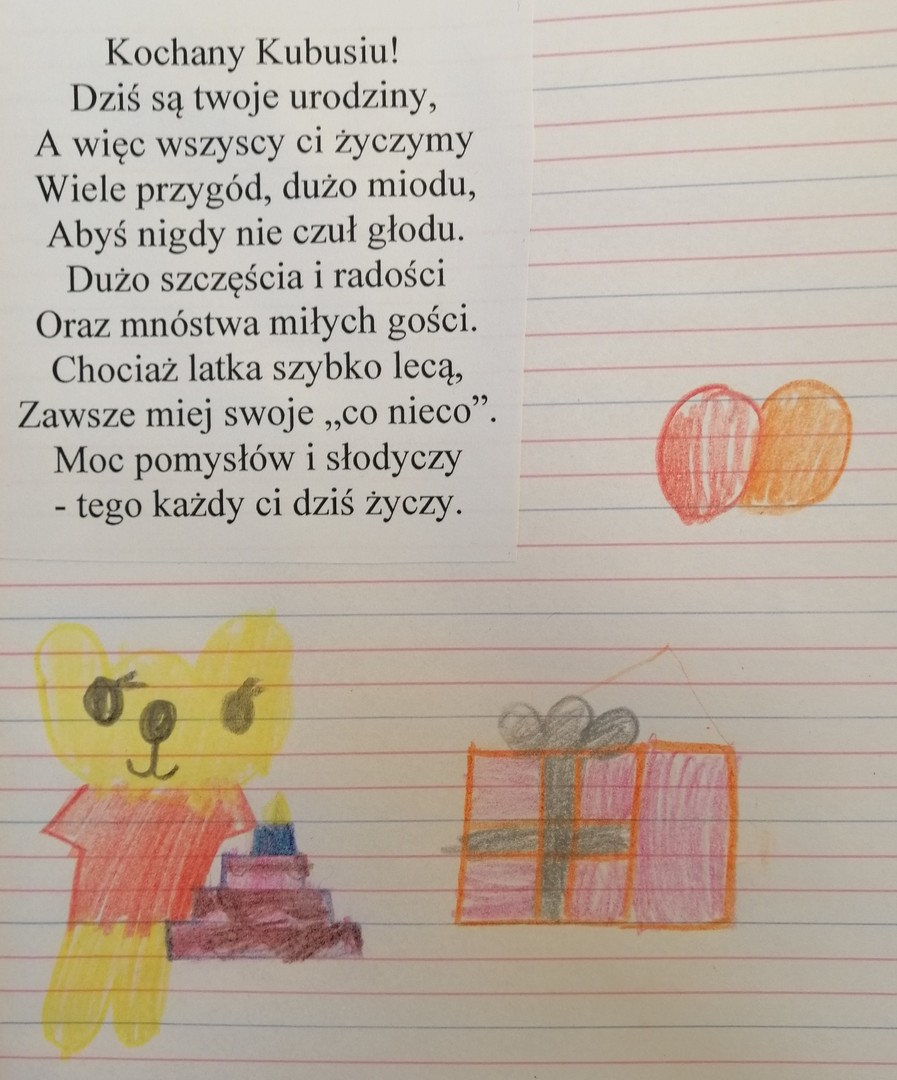 Kochany Kubusiu!
Dziś są twoje urodziny,
A więc wszyscy ci życzymy
Wiele przygód, dużo miodu,
Abyś nigdy nie czuł głodu.
Dużo szczęścia i radości
Oraz mnóstwa miłych gości.
Chociaż latka szybko lecą,
Zawsze miej swoje „co nieco”.
Moc pomysłów i słodyczy
- tego każdy ci dziś życzy.